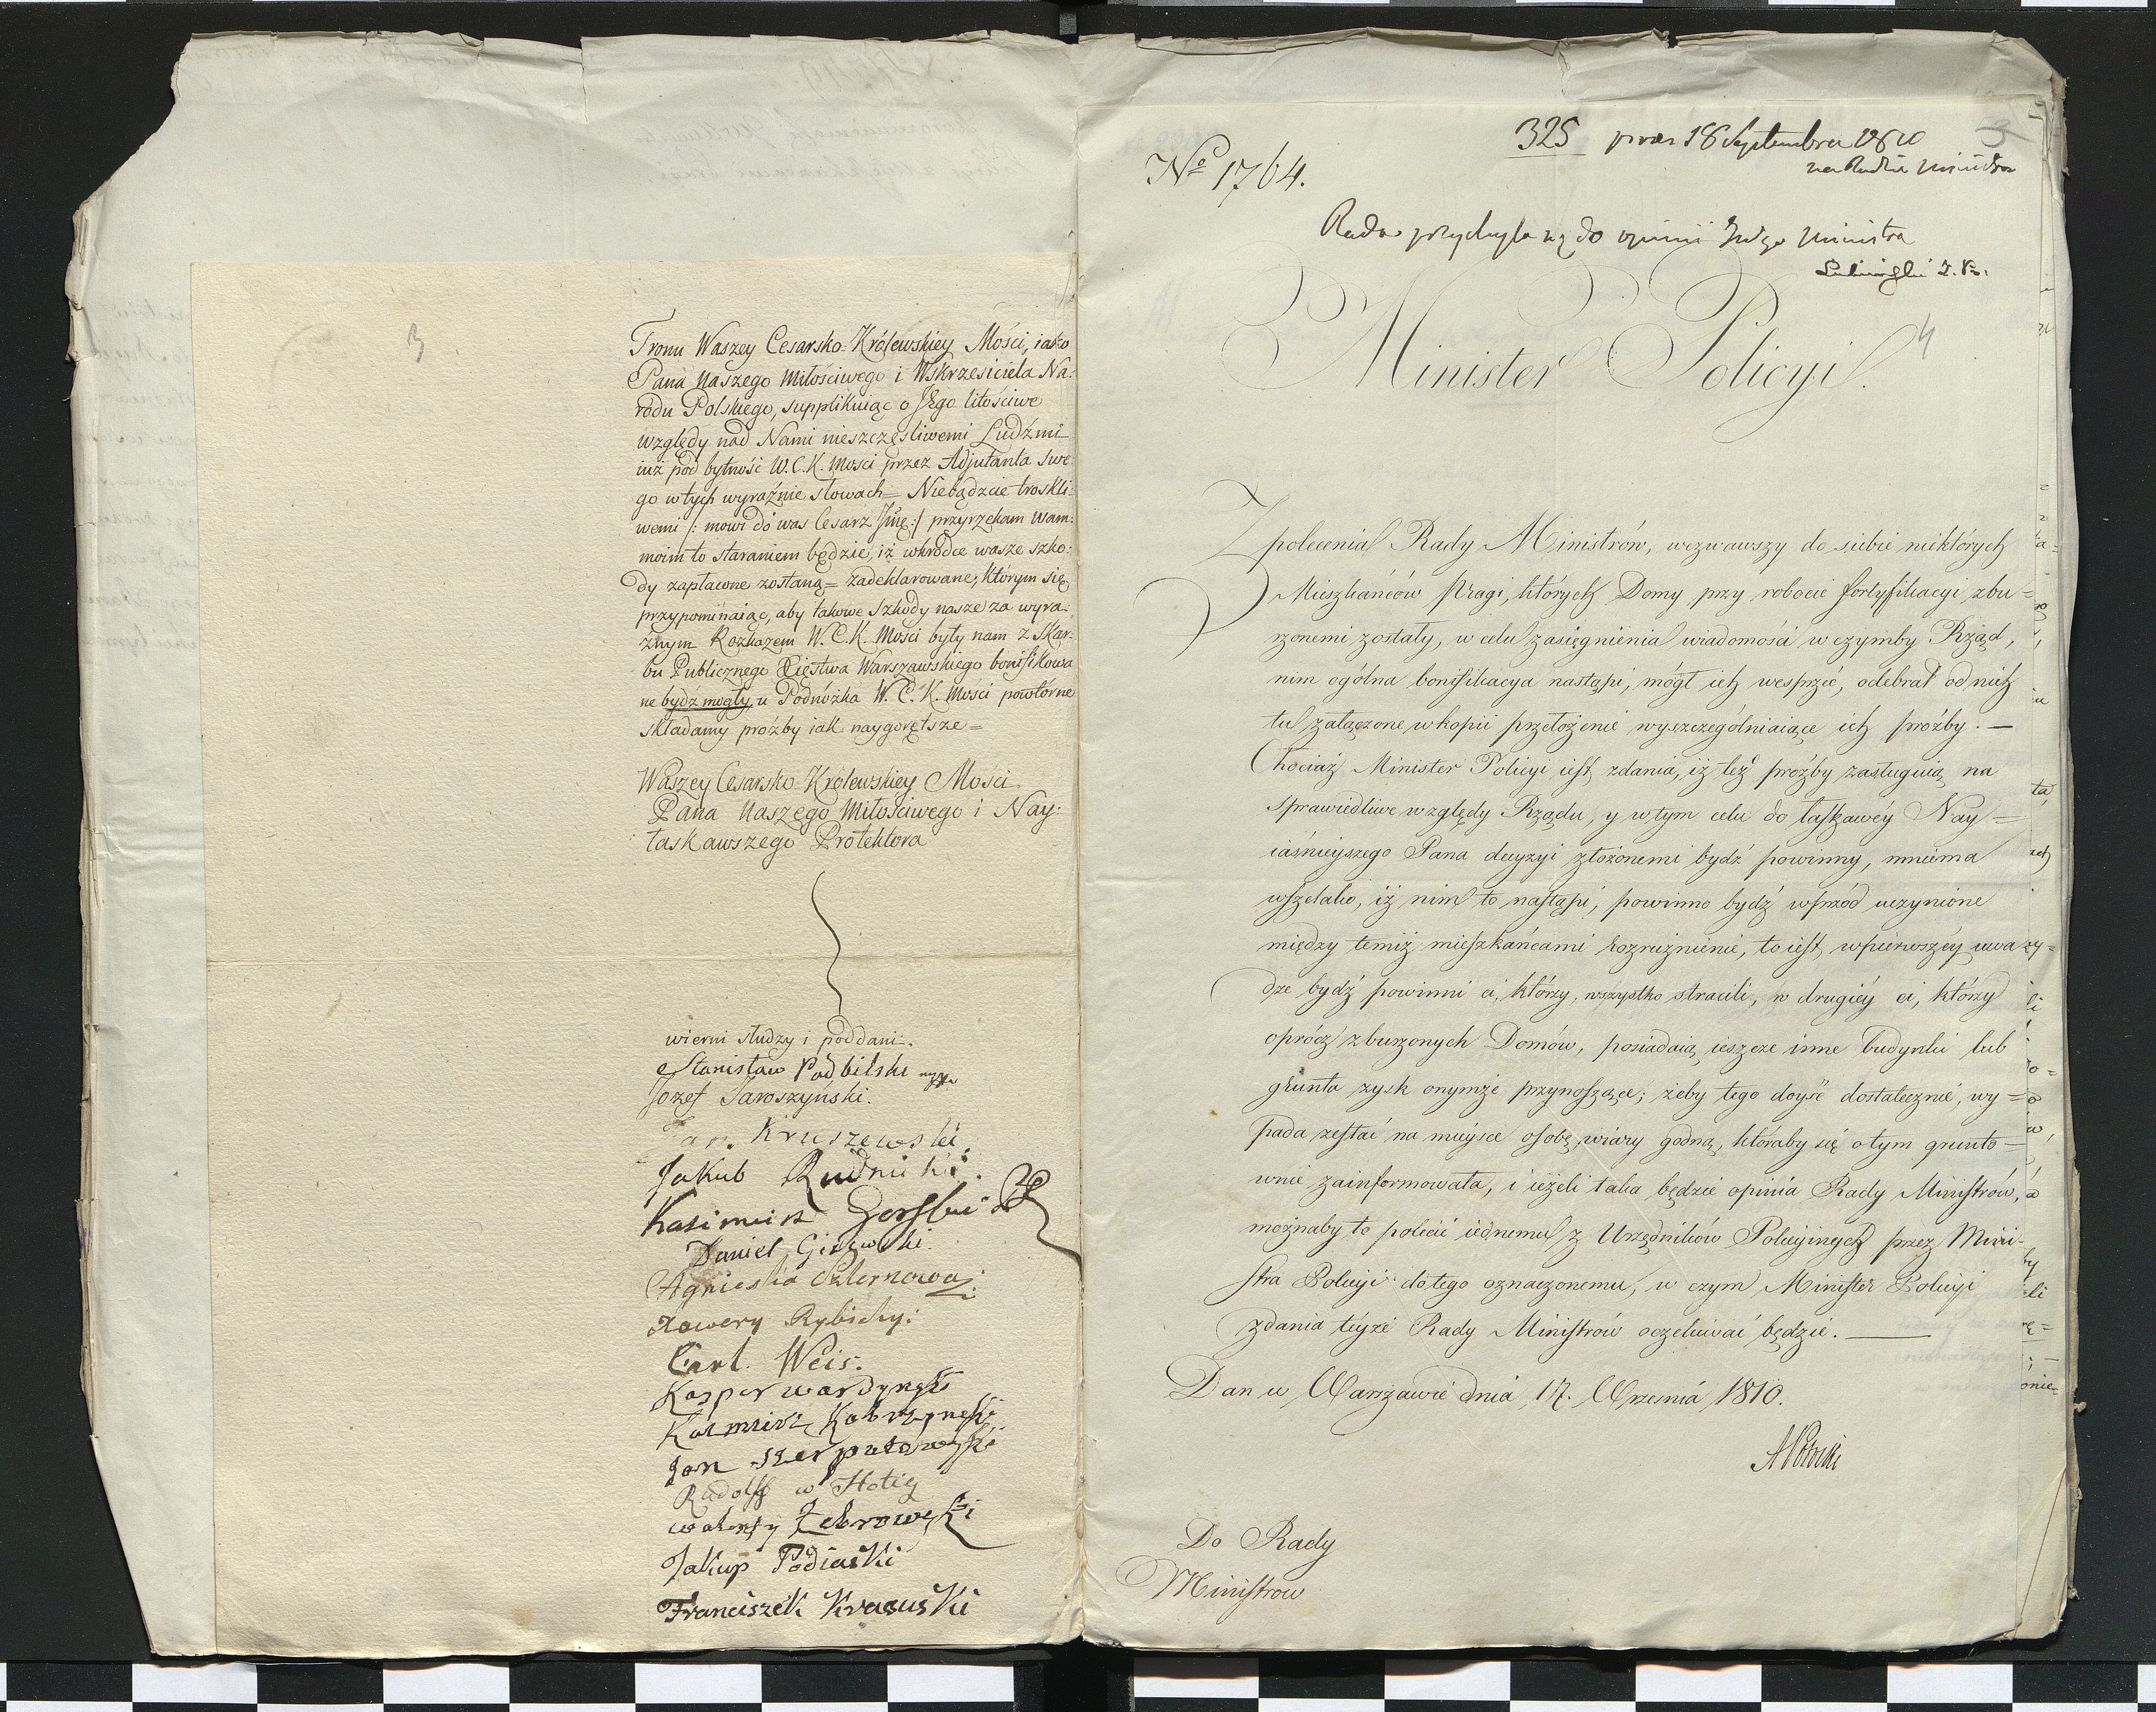 3
Tronu Waszey Cesarsko-Królewskiey Mości, iako
Pana Naszego Miłościwego i Wskrzesiciela Na-
rodu Polskiego, supplikuiąc o Jego litościwe
względy nad Nami nieszczęśliwemi Ludźmi
iuż pod bytność W.C.K. Mości przez Adjutanta swe-
go w tych wyraźnie słowach = Niebądzcie troskli-
wemi /: mowi do was Cesarz Jmę :/ przyrzekam wam:
moim to staraniem będzie, iż wkrodce wasze szko-
dy zapłacone zostaną = zadeklarowane, którym się
przypominaiąc, aby takowe szkody nasze za wyra-
źnym Rozkazem W.C.K. Mości były nam z Skar-
bu Publicznego Xięstwa Warszawskiego bonifikowa
ne bydź mogły, u Podnóżka W.C.K. Mości powtórne
składamy próźby iak naygorętsze =
Waszey Cesarsko-Królewskiey Mości
Pana Naszego Miłościwego i Nay-
łaskawszego Protektora
wierni słudzy i poddani.
Stanisław Podbilski
Jozef Jaroszyński.
Jan Kruszewski
Jakub Rudnicki.
Kasimirz Gorski
Daniel Giżewski.
Agnieszka Szlernowa
Xawery Rybicky:
Carl Weis.
Kasper wardynski
Kazmirz Kobrzynski
Jan szerputowski
Rudolff w Hotig
walenty Zebrowski
Jakup Podiaski
Franciszek Krasuski
325 praes 18 Septembra 1810
3
na Radzie Ministrów
Nº 1764.
Rada przychyla się do opinii Jmgo Ministra
Lubieński
4
Minister Policyi.
Z polecenia Rady Ministrów, wezwawszy do siebie niektórych
Mieszkańców Pragi, których Domy przy robocie fortyfikacyi zbu=
rzonemi zostały, w celu zasięgnienia wiadomości w czymby Rząd,
nim ogólna bonifikacya nastąpi, mógł ich wesprzeć, odebrał od nich
tu załączone w kopii przełożenie wyszczególniaiące ich prożby. —
Chociaż Minister Policyi iest zdania, iż też prożby zasługuią na
sprawiedliwe względy Rządu, y w tym celu do łaskawéy Nay=
iaśnieyszego Pana decyzyi złożonemi bydź powinny, mniema
wszelako, iż nim to nastąpi, powinno bydź wprzód uczynione
między temiż mieszkańcami rozrużnienie, to iest, w pierwszéy uwa
dze bydź powinni ci, którzy wszystko stracili, w drugiéy ci, którzy
oprócz zburzonych Domów, posiadaią ieszcze inne budynki lub
grunta zysk onymże przynoszące; żeby tego doyść dostatecznie, wy=
pada zesłać na mieysce osobę wiary godną, któraby się o tym grunto=
wnie zainformowała, i ieżeli taka będzie opinia Rady Ministrów,
możnaby to polecić iednemu z Urzędników Policyinych przez Mini-
stra Policyi do tego oznaczonemu, w czym Minister Policyi
zdania téyże Rady Ministrów oczekiwać będzie.
Dan w Warszawie dnia 17. Września 1810.
A Potocki
Do Rady
Ministrow